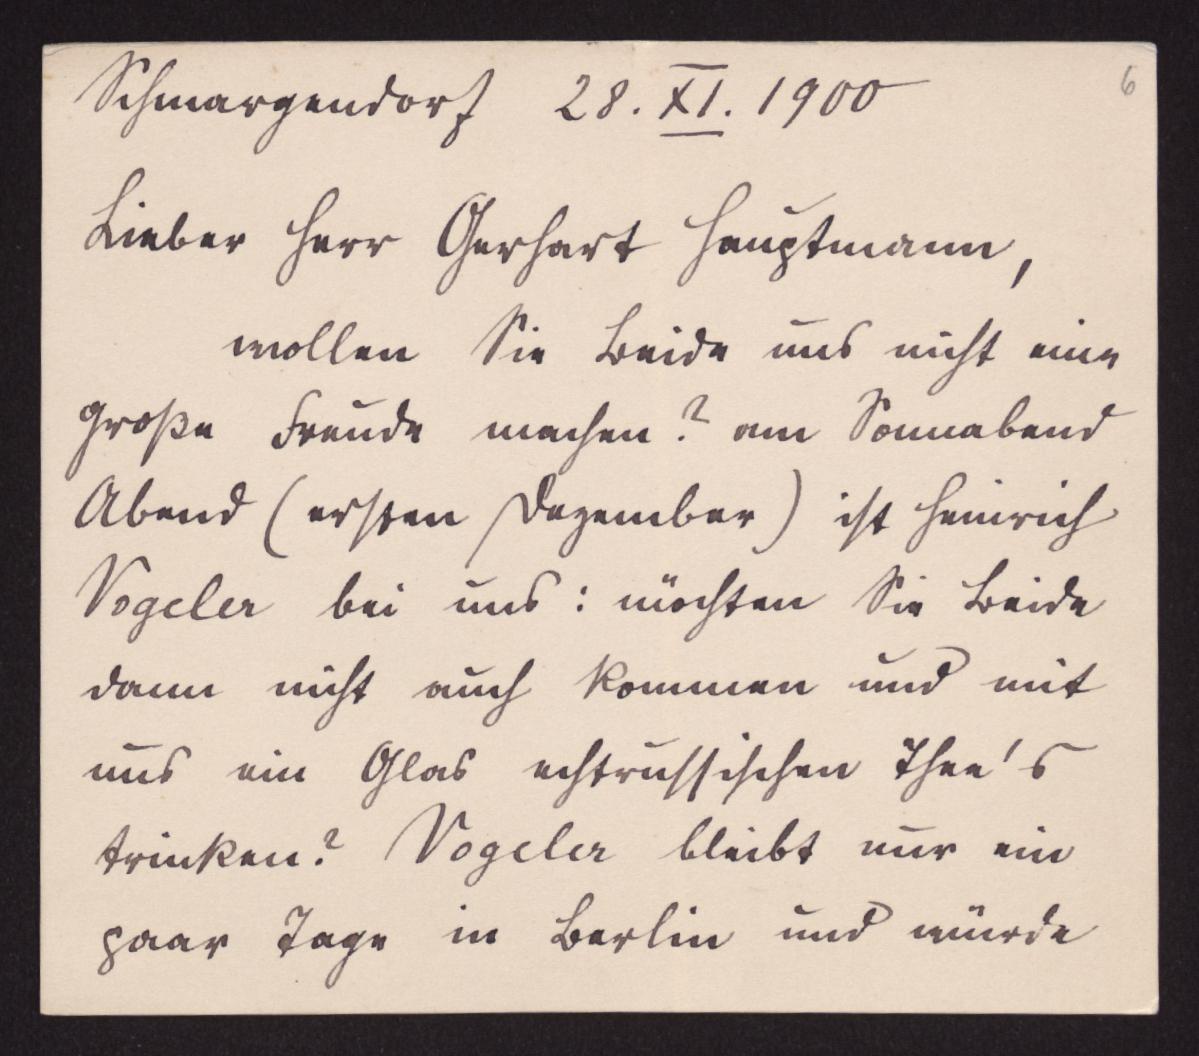 6
Schmargendorf 28. XI. 1900
Lieber Herr Gerhart Hauptmann,
wollen Sie Beide uns nicht eine
große Freude machen? am Sonnabend
Abend (ersten Dezember) ist Heinrich
Vogeler bei uns: möchten Sie Beide
dann nicht auch kommen und mit
uns ein Glas echtrussischen Thee's
trinken? Vogeler bleibt nur ein
paar Tage in Berlin und würde